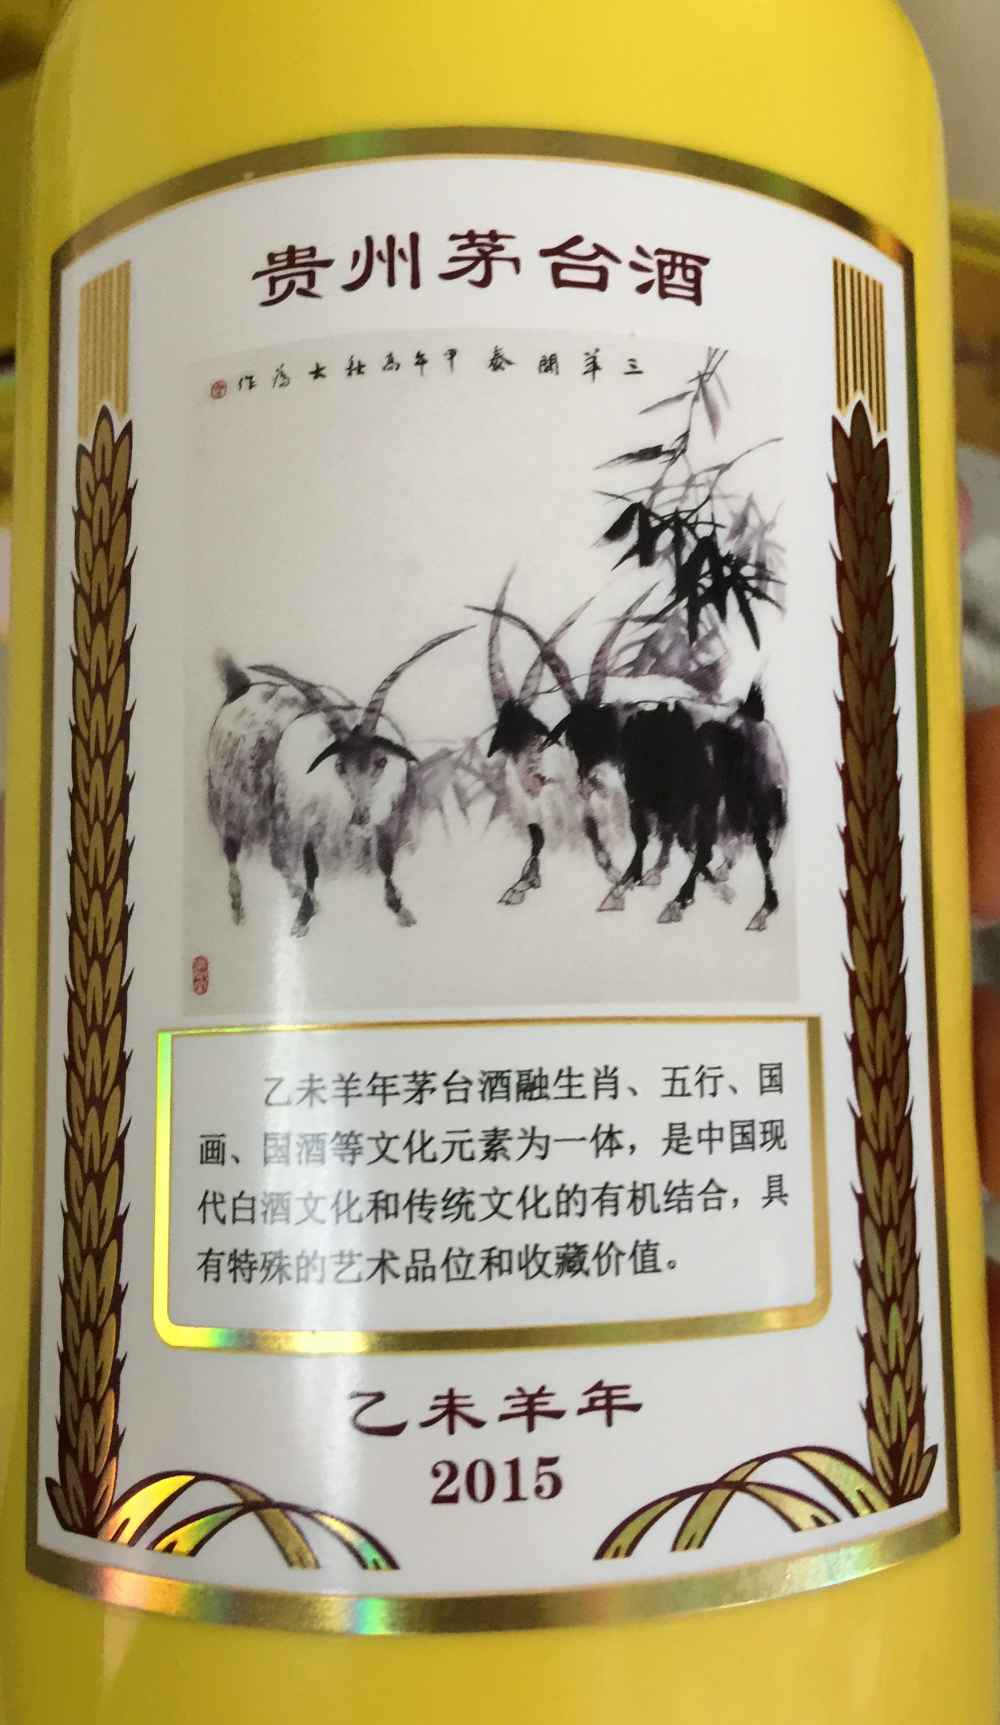 贵州茅台酒
三羊開泰甲午高秋大为作
乙未羊年茅台酒融生肖、五行、国
画、国酒等文化元素为一体，是中国现
代白酒文化和传统文化的有机结合，具
有特殊的艺术品位和收藏价值。
乙未羊年
2015